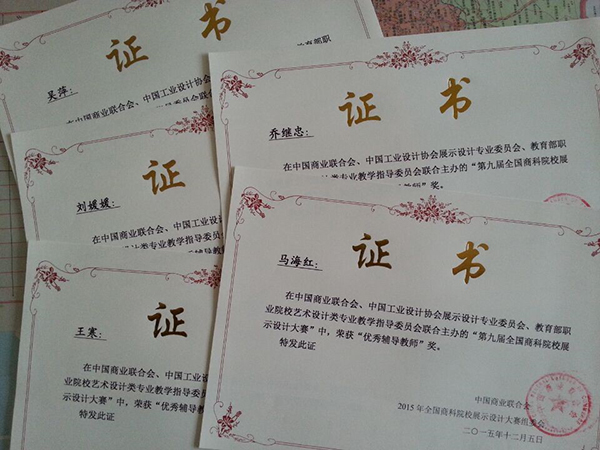 证书
吴萍：
在中国商业联合会、中国工业设计协会
证书
乔继忠：
在中国商业联合会、中国工业设计协会展示设计专业委员会、教育部职
艺术设计类专业教学指导委员会联合主办的“第九届全国商科院校展
奖。
证
刘媛媛：
在中国商业联合会、中国工业设
证
王寒：
在中国商业联合会、中国工业设计
业院校艺术设计类专业教学指导委员
示设计大赛”中，荣获“优秀辅导教
特发此证
证书
马海红：
在中国商业联合会、中国工业设计协会展示设计专业委员会、教育部职
业院校艺术设计类专业教学指导委员会联合主办的“第九届全国商科院校展
示设计大赛”中，荣获“优秀辅导教师”奖。
特发此证
中国商业联合会
2015年全国商科院校展示设计大赛组委会
二〇一五年十二月五日